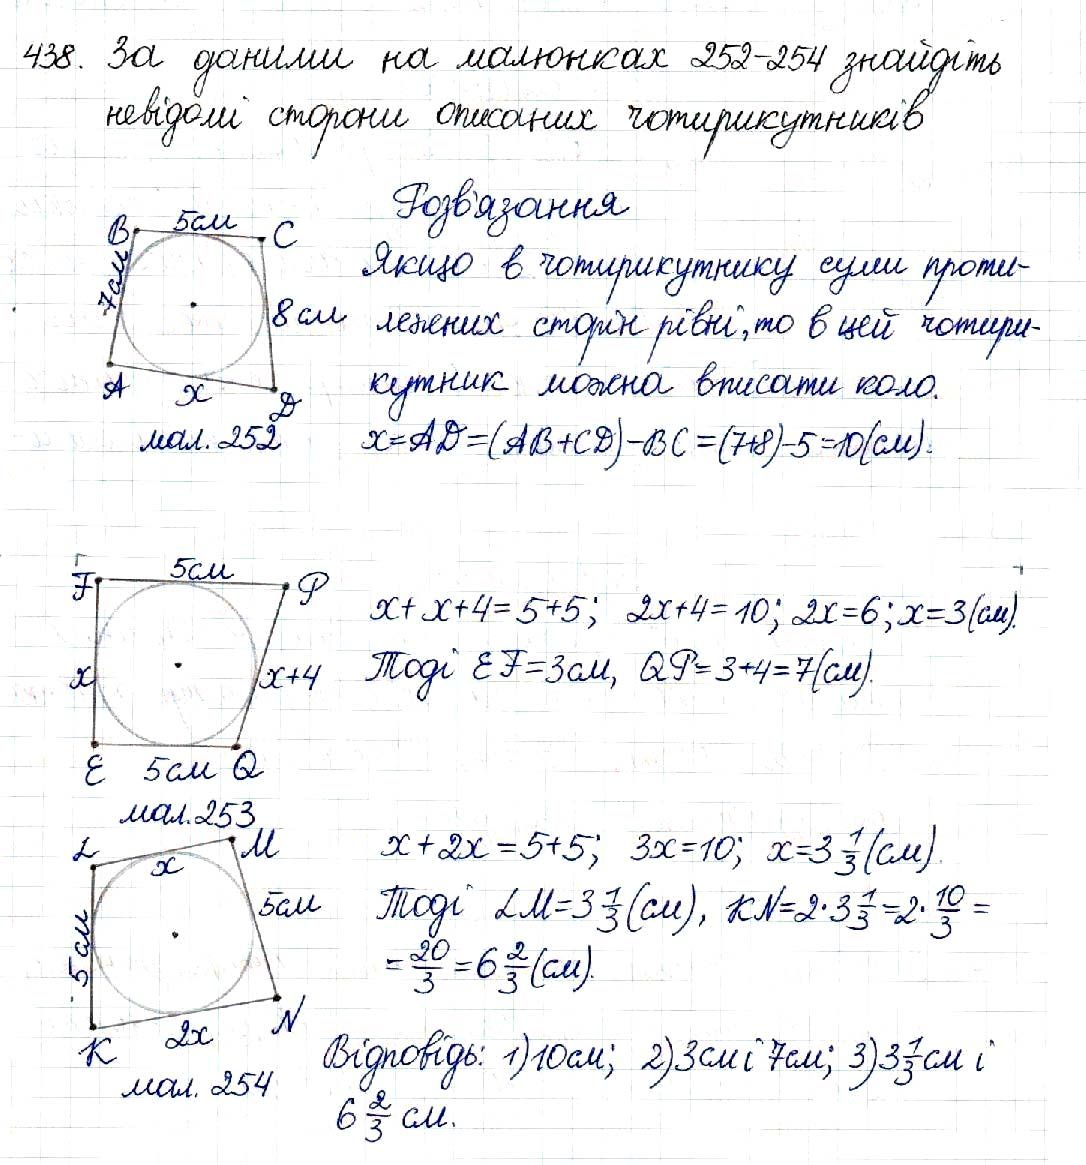 438. За даними на малюнках 252-254 знайдіть
невідомі сторони описаних чотирикутників
Розв'язання
B 5см C
7см
8 см
A x D
мал. 252
Якщо в чотирикутнику суми проти-
лежних сторін рівні, то в цей чотири-
кутник можна вписати коло.
x=AD=(AB+CD)-BC=(7+8)-5=10(см).
F 5см P
x
x+4
E 5см Q
мал. 253
x+x+4=5+5; 2x+4=10; 2x=6; x=3(см).
Тоді EF=3см, QP=3+4=7(см).
L x M
5см
5см
K 2x N
мал. 254
x+2x=5+5; 3x=10; x=3 1/3 (см).
Тоді LM=3 1/3 (см), KN=2·3 1/3=2·10/3=
=20/3=6 2/3 (см).
Відповідь: 1) 10см; 2) 3см і 7см; 3) 3 1/3 см і
6 2/3 см.